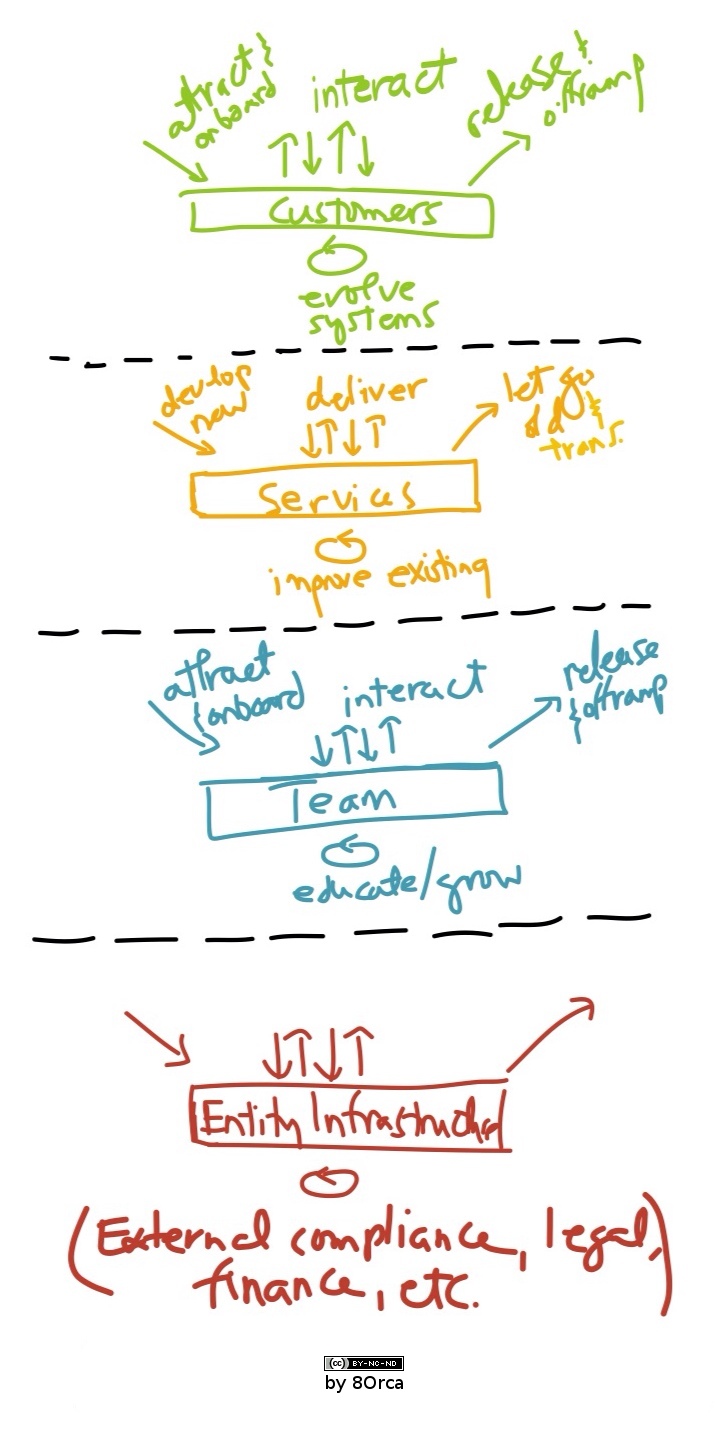 attract &
onboard
interact
release &
offramp
Customers
evolve
systems
develop
new
deliver
let go
old &
trans.
Services
improve existing
attract
& onboard
interact
release
& offramp
Team
educate/grow
Entity Infrastructure
(External compliance, legal,
finance, etc.)
(cc) BY-NC-ND
by 8Orca